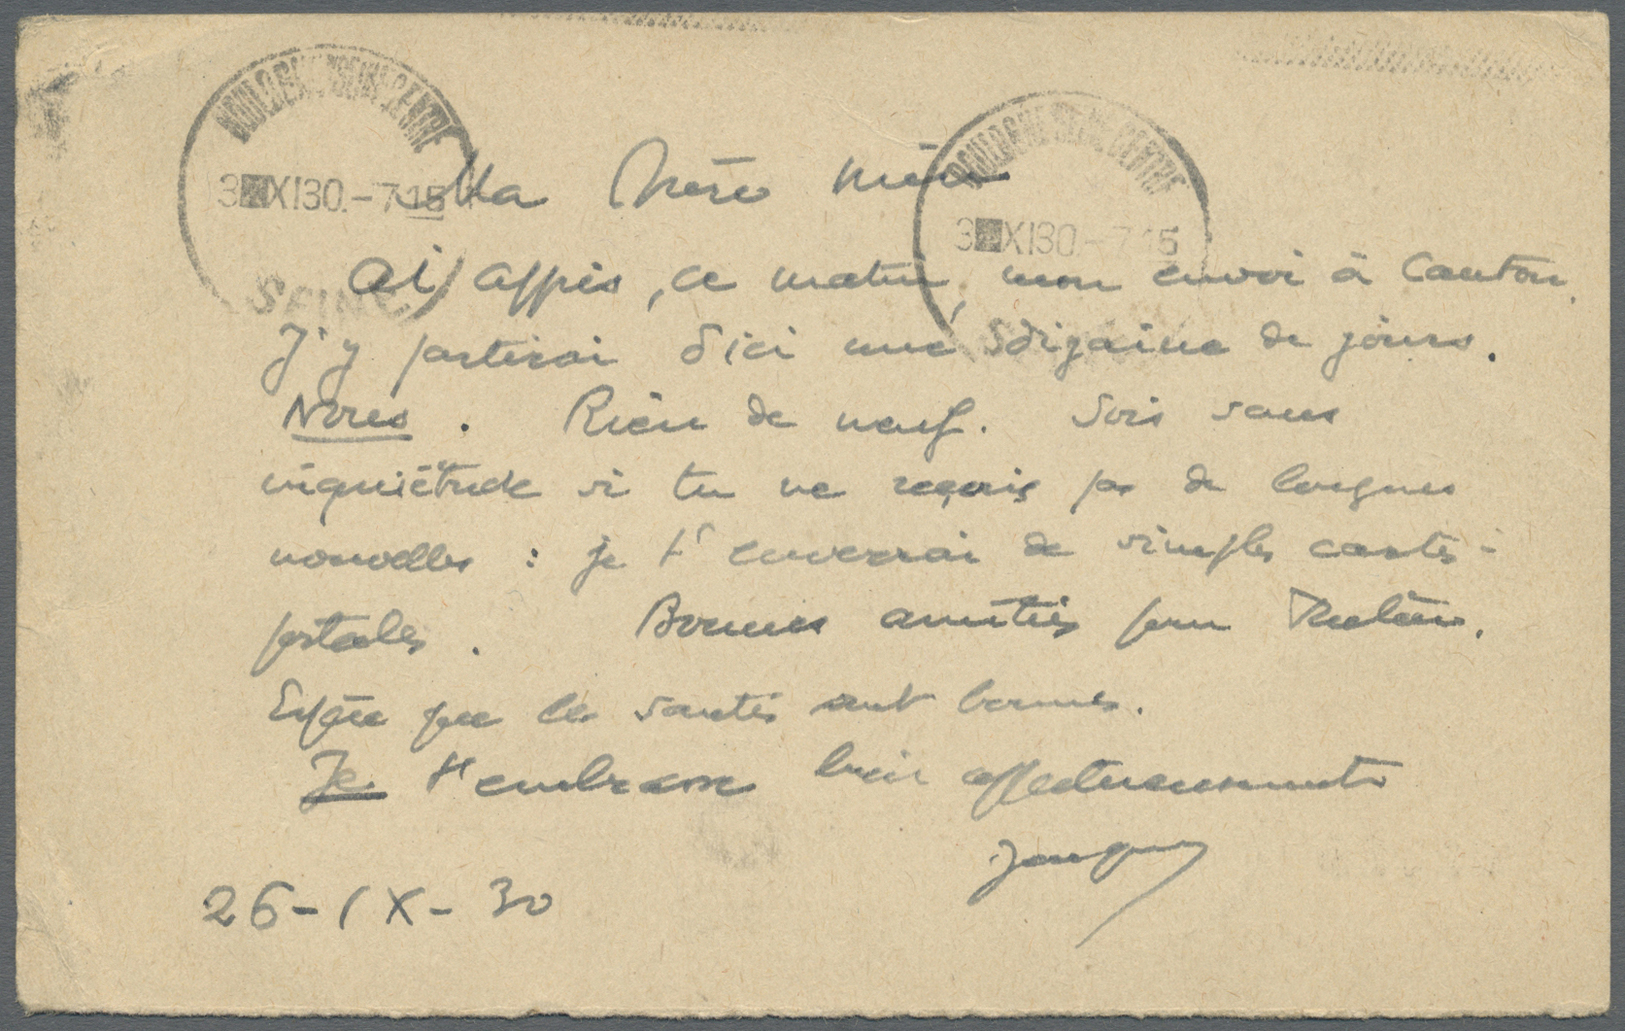 BOULOGNE SEINE CENTRE
3 XI30.-7 15
SEINE
BOULOGNE SEINE CENTRE
3 XI30-7 15
Ma Chère mère
Ai appris, ce matin, mon envoi à Canton.
J'y partirai d'ici une dizaine de jours.
Rien de neuf. Sois sans
inquiétude si tu ne reçois pas de longues
nouvelles : je t'enverrai de simples cartes-
postales. Bonnes amitiés pour
Espère que les santés sont bonnes.
Je t'embrasse bien affectueusement
Jacques
26-IX-30